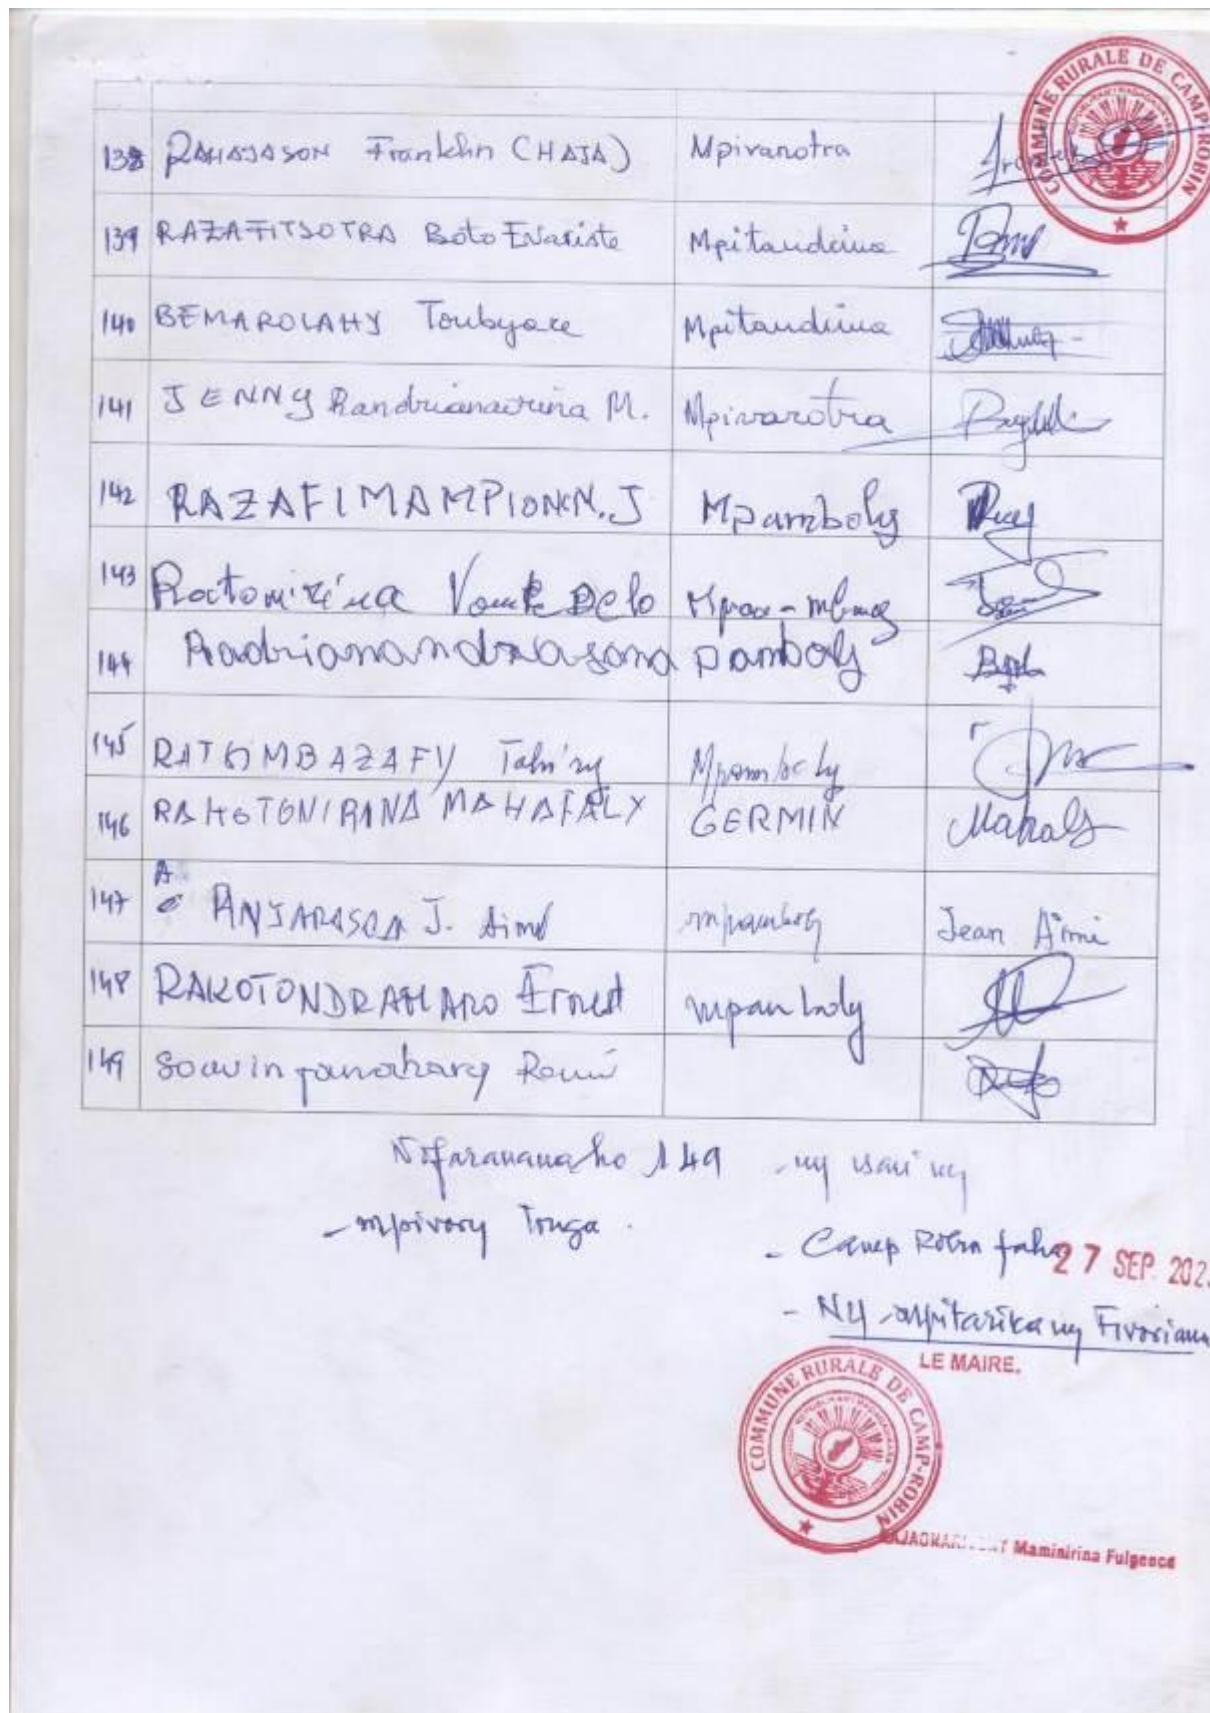 COMMUNE RURALE DE CAMP-ROBIN
138 RAHAJASON Franklin (HAJA) Mpivarotra
139 RAZAFITSOTRA Boto Evariste Mpitandrina
140 BEMAROLAHY Toubyace Mpitandrina
141 JENNY Randrianaivrina M. Mpivarotra
142 RAZAFIMAMPIONN.J Mpamboly
143 Ratomizina
144 Radrianandrasana pamboly
145 RATSIMBAZAFY Tahiny Mpamboly
146 RAKOTONIRINA MAHAFALY GERMIN Mahaly
147 A ANJARASOA J. Aimé mpamboly Jean Aimé
148 RAKOTONDRAHARO Ernest mpamboly
149 Soavinjanahary Rémi
Nofaranana ho 149 ny isan'ny
- mpivory Tonga.
- Camp Robin faha 27 SEP. 202
- NY mpitarika ny Fivoriana
LE MAIRE.
COMMUNE RURALE DE CAMP-ROBIN
Maminirina Fulgence